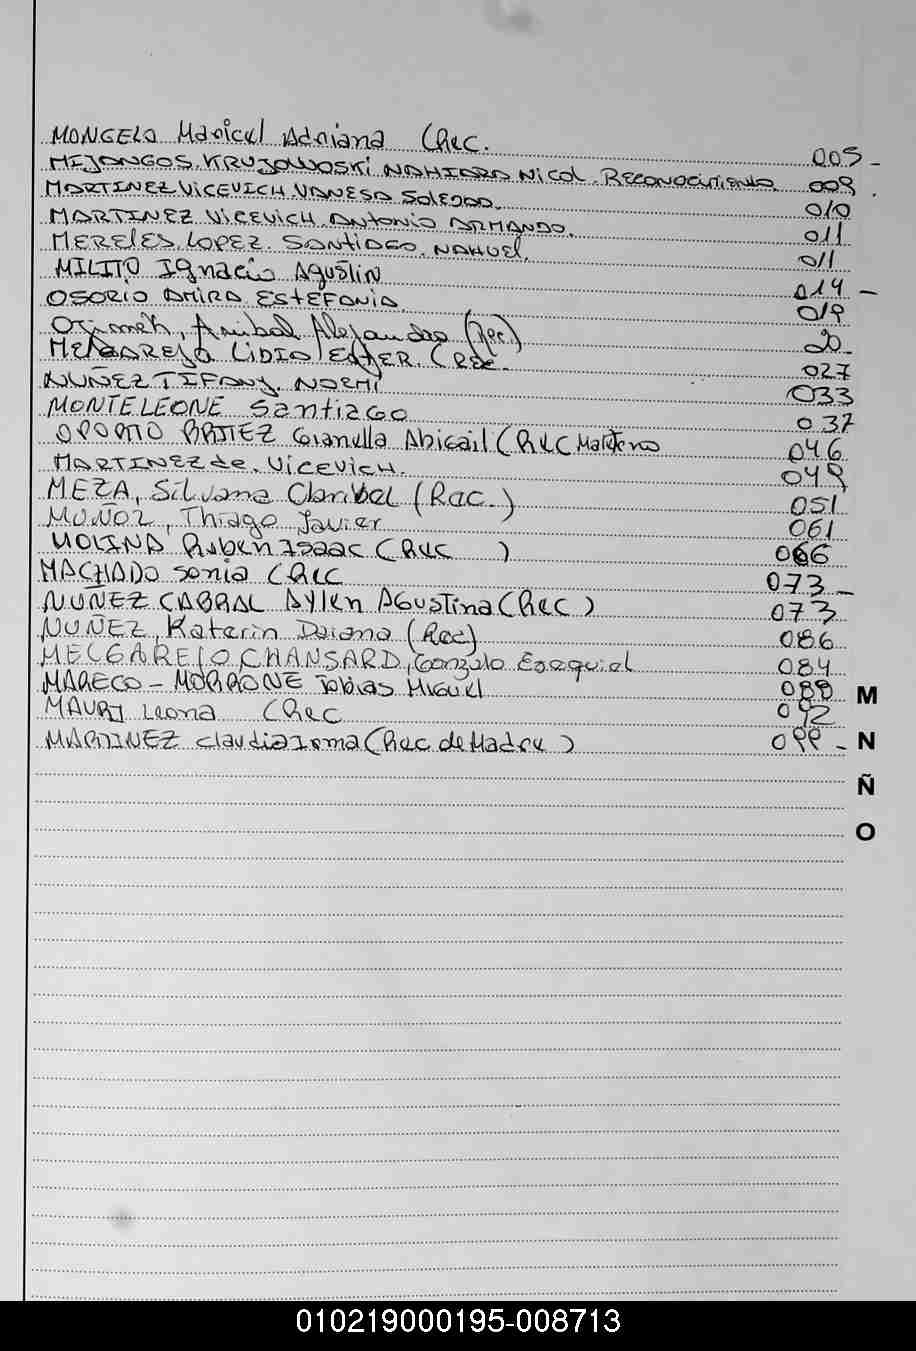 MONGELO Maricel Adriana (Rec. 005-
MIJANGOS. KRUJOWOSKI NAHIARA Nicol. Reconocimiento. 009
MARTINEZ VICEVICH. VANESA SOLEDAD. 010
MARTINEZ. VICEVICH. Antonio ARMANDO. 011
MERELES. LOPEZ. SANTIAGO. NAHUEL. 011
MILITO Ignacio AGUSTIN 014 -
OSORIO AMIRA ESTEFANIA 019
Anibal Alejandro (Rec.) 20
MELGAREJO LIDIO ESTER (Rec. 027
NUÑEZ TIFANY NOEMI 033
MONTELEONE Santiago 037
OPORTO BRITEZ Gianella Abigail (Rec Materno 046
MARTINEZ de. VICEVICH. 049
MEZA, Silvana Claribel (Rec.) 051
MUÑOZ, Thiago Javier 061
MOLINA Ruben Isaac (Rec ) 066
MACHADO Sonia (Rec 073 -
NUÑEZ CABRAL AYLEN AGUSTINA (Rec ) 073
NUÑEZ, Katerin Daiana (Rec) 086
MELGAREJO CHANSARD, Gonzalo Esequiel 084
MARECO - MORRONE Tobias MIGUEL 089
M
MAURI Leona (Rec 092
MARTINEZ Claudia Irma (Rec de Madre ) 099 -
N
Ñ
O
010219000195-008713